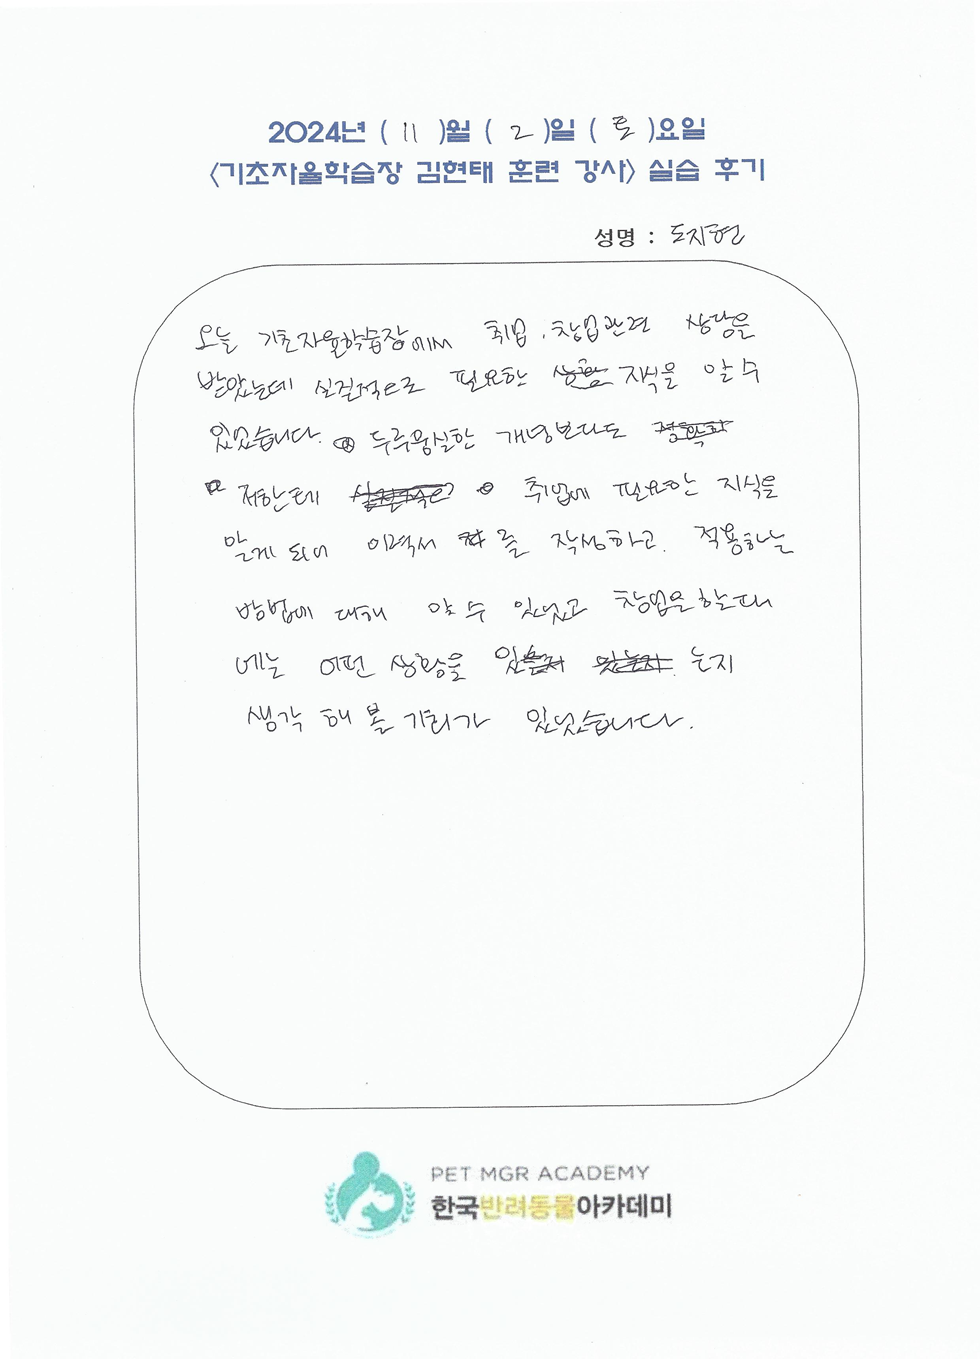 2024년 ( 11 )월 ( 2 )일 ( 토 )요일
<기초자율학습장 김현태 훈련 강사> 실습 후기
성명 : 도지현
오늘 기초자율학습장에서 취업, 창업관련 상담을
받았는데 실질적으로 필요한 지식을 알 수
있었습니다. 두루뭉실한 개념보다도
저한테 취업에 필요한 지식을
알게 되어 이력서를 작성하고, 적용하는
방법에 대해 알 수 있었고 창업을 할때
에는 어떤 상황을 있는지
생각 해 볼 기회가 있었습니다.
PET MGR ACADEMY
한국반려동물아카데미